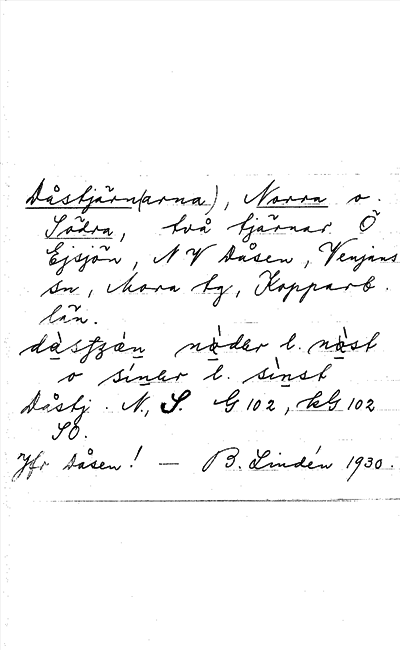 Dåstjärn(arna), Norra o.
Södra, två tjärnar Ö
Ejsjön, NV Dåsen, Venjans
sn, Mora tg, Kopparb.
län.
nòder l. nòst
o sìnler l. sìnst
Dåstj. N., S. G 102, kG 102
SO.
Jfr Dåsen! — B. Lindén 1930.